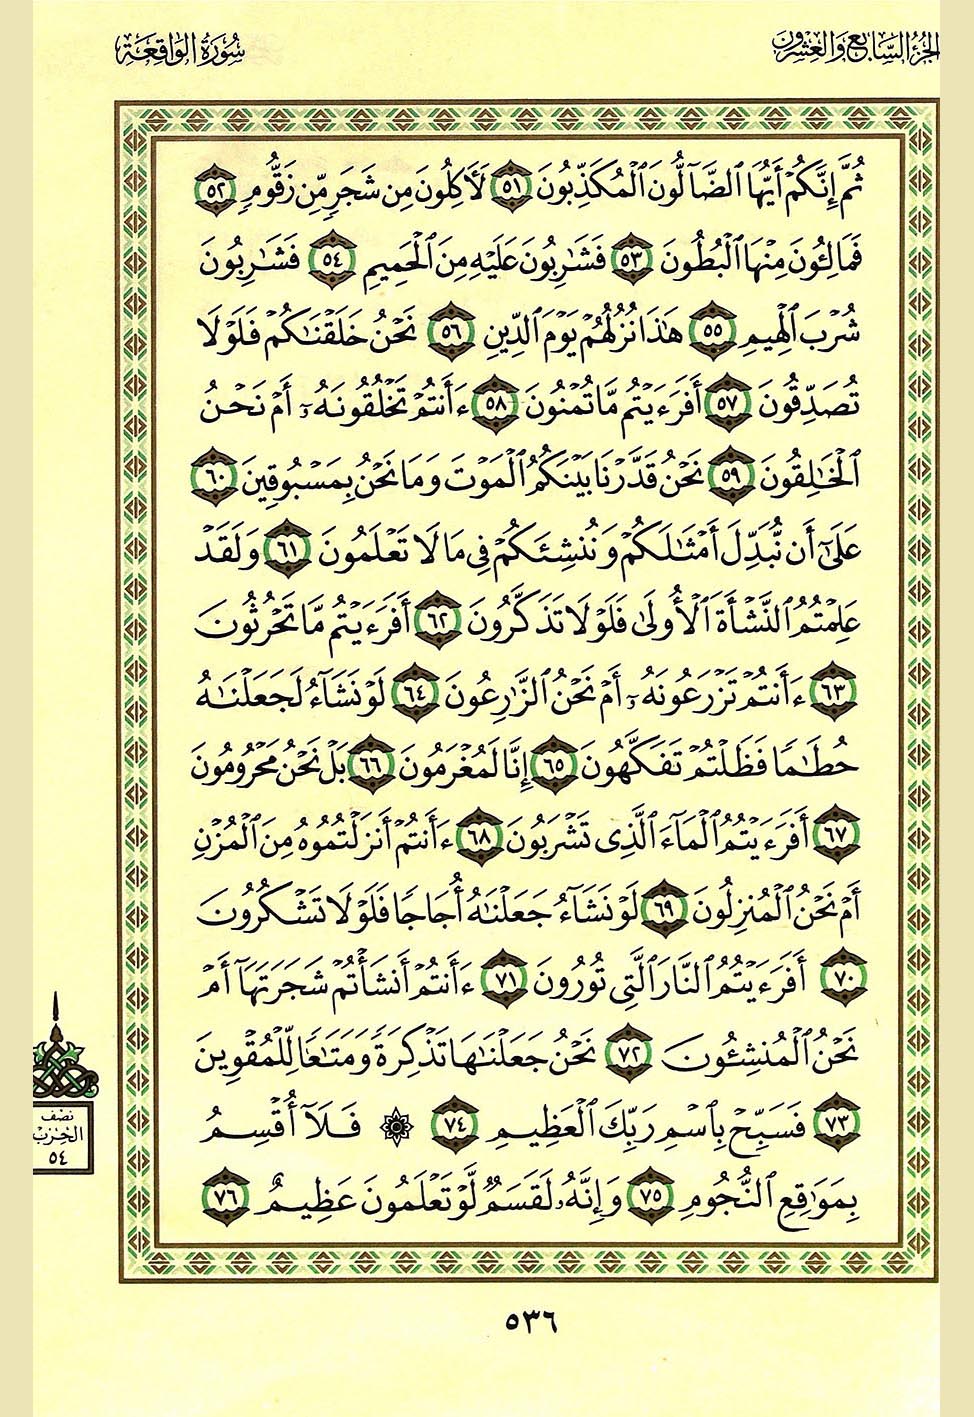 الجزء السابع والعشرون
سورة الواقعة
ثُمَّ إِنَّكُمْ أَيُّهَا ٱلضَّآلُّونَ ٱلْمُكَذِّبُونَ ٥١ لَـَٔاكِلُونَ مِن شَجَرٍ مِّن زَقُّومٍ ٥٢
فَمَالِـُٔونَ مِنْهَا ٱلْبُطُونَ ٥٣ فَشَٰرِبُونَ عَلَيْهِ مِنَ ٱلْحَمِيمِ ٥٤ فَشَٰرِبُونَ
شُرْبَ ٱلْهِيمِ ٥٥ هَٰذَا نُزُلُهُمْ يَوْمَ ٱلدِّينِ ٥٦ نَحْنُ خَلَقْنَٰكُمْ فَلَوْلَا
تُصَدِّقُونَ ٥٧ أَفَرَءَيْتُم مَّا تُمْنُونَ ٥٨ ءَأَنتُمْ تَخْلُقُونَهُۥٓ أَمْ نَحْنُ
ٱلْخَٰلِقُونَ ٥٩ نَحْنُ قَدَّرْنَا بَيْنَكُمُ ٱلْمَوْتَ وَمَا نَحْنُ بِمَسْبُوقِينَ ٦٠
عَلَىٰٓ أَن نُّبَدِّلَ أَمْثَٰلَكُمْ وَنُنشِئَكُمْ فِى مَا لَا تَعْلَمُونَ ٦١ وَلَقَدْ
عَلِمْتُمُ ٱلنَّشْأَةَ ٱلْأُولَىٰ فَلَوْلَا تَذَكَّرُونَ ٦٢ أَفَرَءَيْتُم مَّا تَحْرُثُونَ
٦٣ ءَأَنتُمْ تَزْرَعُونَهُۥٓ أَمْ نَحْنُ ٱلزَّٰرِعُونَ ٦٤ لَوْ نَشَآءُ لَجَعَلْنَٰهُ
حُطَٰمًا فَظَلْتُمْ تَفَكَّهُونَ ٦٥ إِنَّا لَمُغْرَمُونَ ٦٦ بَلْ نَحْنُ مَحْرُومُونَ
٦٧ أَفَرَءَيْتُمُ ٱلْمَآءَ ٱلَّذِى تَشْرَبُونَ ٦٨ ءَأَنتُمْ أَنزَلْتُمُوهُ مِنَ ٱلْمُزْنِ
أَمْ نَحْنُ ٱلْمُنزِلُونَ ٦٩ لَوْ نَشَآءُ جَعَلْنَٰهُ أُجَاجًا فَلَوْلَا تَشْكُرُونَ
٧٠ أَفَرَءَيْتُمُ ٱلنَّارَ ٱلَّتِى تُورُونَ ٧١ ءَأَنتُمْ أَنشَأْتُمْ شَجَرَتَهَآ أَمْ
نَحْنُ ٱلْمُنشِـُٔونَ ٧٢ نَحْنُ جَعَلْنَٰهَا تَذْكِرَةً وَمَتَٰعًا لِّلْمُقْوِينَ
٧٣ فَسَبِّحْ بِٱسْمِ رَبِّكَ ٱلْعَظِيمِ ٧٤ ۞ فَلَآ أُقْسِمُ
بِمَوَٰقِعِ ٱلنُّجُومِ ٧٥ وَإِنَّهُۥ لَقَسَمٌ لَّوْ تَعْلَمُونَ عَظِيمٌ ٧٦
نصف
الحزب
٥٤
٥٣٦